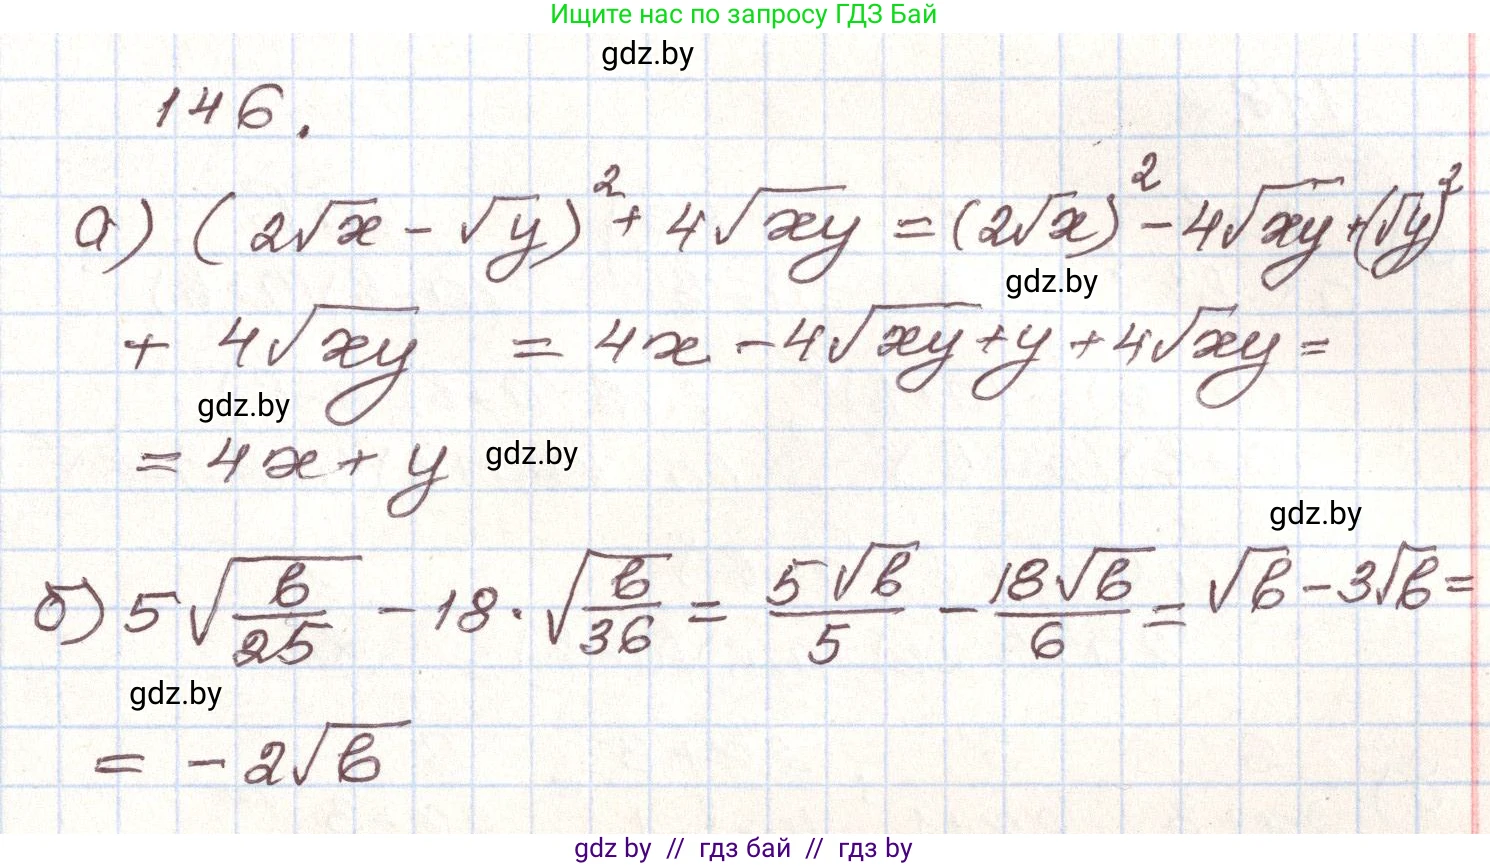 Ищите нас по запросу ГДЗ Бай
gdz.by
146.
а) (2√x - √y)² + 4√xy = (2√x)² - 4√xy + (√y)²
gdz.by
+ 4√xy = 4x - 4√xy + y + 4√xy =
gdz.by
= 4x + y gdz.by
gdz.by
б) 5√(b/25) - 18 · √(b/36) = 5√b/5 - 18√b/6 = √b - 3√b =
gdz.by
= - 2√b
gdz by // гдз бай // гдз by